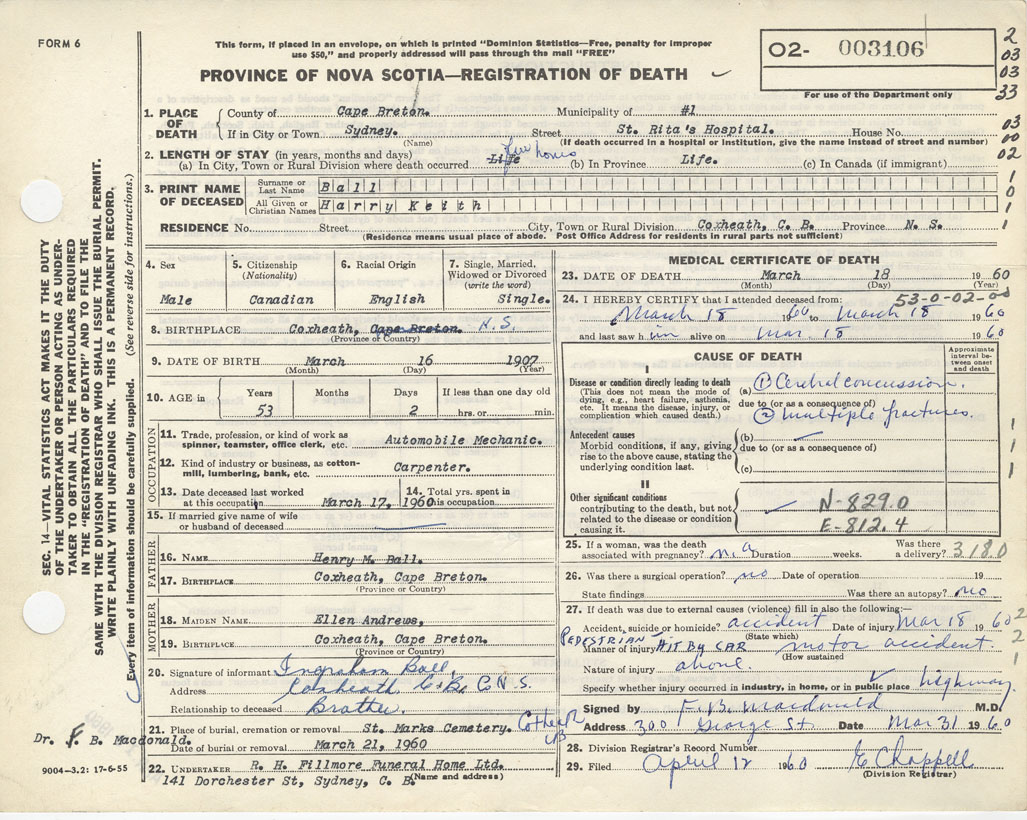 FORM 6
This form, if placed in an envelope, on which is printed "Dominion Statistics—Free, penalty for improper
use $50," and properly addressed will pass through the mail "FREE"
PROVINCE OF NOVA SCOTIA—REGISTRATION OF DEATH
O2- 003106
For use of the Department only
2
03
03
33
03
00
02
1
0
1
1
1. PLACE OF DEATH
County of Cape Breton. Municipality of #1
If in City or Town Sydney. Street St. Rita's Hospital. House No.
(Name) (If death occurred in a hospital or institution, give the name instead of street and number)
2. LENGTH OF STAY (in years, months and days) few hours
(a) In City, Town or Rural Division where death occurred Life (b) In Province Life. (c) In Canada (if immigrant)
3. PRINT NAME OF DECEASED
Surname or Last Name Ball
All Given or Christian Names Harry Keith
RESIDENCE No. Street City, Town or Rural Division Coxheath, C. B. Province N. S.
(Residence means usual place of abode. Post Office Address for residents in rural parts not sufficient)
4. Sex
Male
5. Citizenship
(Nationality)
Canadian
6. Racial Origin
English
7. Single, Married,
Widowed or Divorced
(write the word)
Single.
8. BIRTHPLACE Coxheath, Cape Breton. N.S.
(Province or Country)
9. DATE OF BIRTH March 16 1907
(Month) (Day) (Year)
10. AGE in Years Months Days If less than one day old
53 2 hrs. or min.
OCCUPATION
11. Trade, profession, or kind of work as
spinner, teamster, office clerk, etc. Automobile Mechanic.
12. Kind of industry or business, as cotton-
mill, lumbering, bank, etc. Carpenter.
13. Date deceased last worked
at this occupation March 17, 1960
14. Total yrs. spent in
this occupation
15. If married give name of wife
or husband of deceased
FATHER
16. NAME Henry M. Ball.
17. BIRTHPLACE Coxheath, Cape Breton.
(Province or Country)
MOTHER
18. MAIDEN NAME Ellen Andrews,
19. BIRTHPLACE Coxheath, Cape Breton.
(Province or Country)
20. Signature of informant Ingraham Ball,
Address Coxheath C.B., N.S.
Relationship to deceased Brother
21. Place of burial, cremation or removal St. Marks Cemetery. Coxheath CB
Date of burial or removal March 21, 1960
22. UNDERTAKER R. H. Fillmore Funeral Home Ltd.
(Name and address)
141 Dorchester St, Sydney, C. B.
MEDICAL CERTIFICATE OF DEATH
23. DATE OF DEATH March 18 1960
(Month) (Day) (Year)
53-0-02-00
24. I HEREBY CERTIFY that I attended deceased from:
March 18 1960 to March 18 1960
and last saw him alive on Mar. 18 1960
CAUSE OF DEATH
Approximate
interval be-
tween onset
and death
I
Disease or condition directly leading to death
(This does not mean the mode of
dying, e.g., heart failure, asthenia,
etc. It means the disease, injury, or
complication which caused death.)
(a) (1) Cerebral concussion.
due to (or as a consequence of)
(2) multiple fractures.
Antecedent causes
Morbid conditions, if any, giving
rise to the above cause, stating the
underlying condition last.
(b)
due to (or as a consequence of)
(c)
1
1
1
II
Other significant conditions
contributing to the death, but not
related to the disease or condition
causing it.
N-829.0
E-812.4
25. If a woman, was the death
associated with pregnancy? n.a Duration weeks. Was there
a delivery? 3180
26. Was there a surgical operation? no Date of operation 19
State findings Was there an autopsy? no
27. If death was due to external causes (violence) fill in also the following:—
Accident, suicide or homicide? accident Date of injury Mar 18 1960
(State which)
2
2
1
Manner of injury PEDESTRIAN HIT BY CAR motor accident.
(How sustained)
Nature of injury above.
Specify whether injury occurred in industry, in home, or in public place highway.
Signed by F. B. Macdonald M.D.
Address 300 George St. Date Mar 31 1960
28. Division Registrar's Record Number
29. Filed April 12 1960 E Chappell
(Division Registrar)
SEC. 14—VITAL STATISTICS ACT MAKES IT THE DUTY
OF THE UNDERTAKER OR PERSON ACTING AS UNDER-
TAKER TO OBTAIN ALL THE PARTICULARS REQUIRED
IN THE "REGISTRATION OF DEATH" AND TO FILE THE
SAME WITH THE DIVISION REGISTRAR WHO SHALL ISSUE THE BURIAL PERMIT.
WRITE PLAINLY WITH UNFADING INK. THIS IS A PERMANENT RECORD.
Every item of information should be carefully supplied. (See reverse side for instructions.)
Dr. F. B. Macdonald.
9004—3.2: 17-6-55